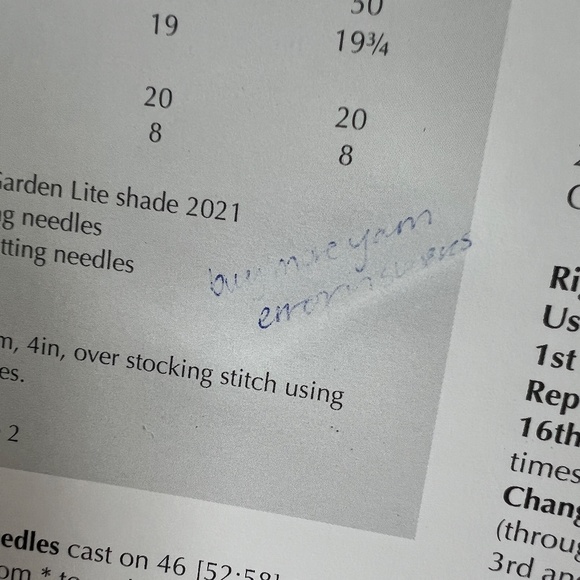 50
19 19¾
20 20
8 8
Garden Lite shade 2021
ng needles
tting needles
buy more yarn
error in
m, 4in, over stocking stitch using
es.
2
Us
1st
Rep
16th
times
Chang
(throug
3rd an
eedles cast on 46 [52:58]
om * to